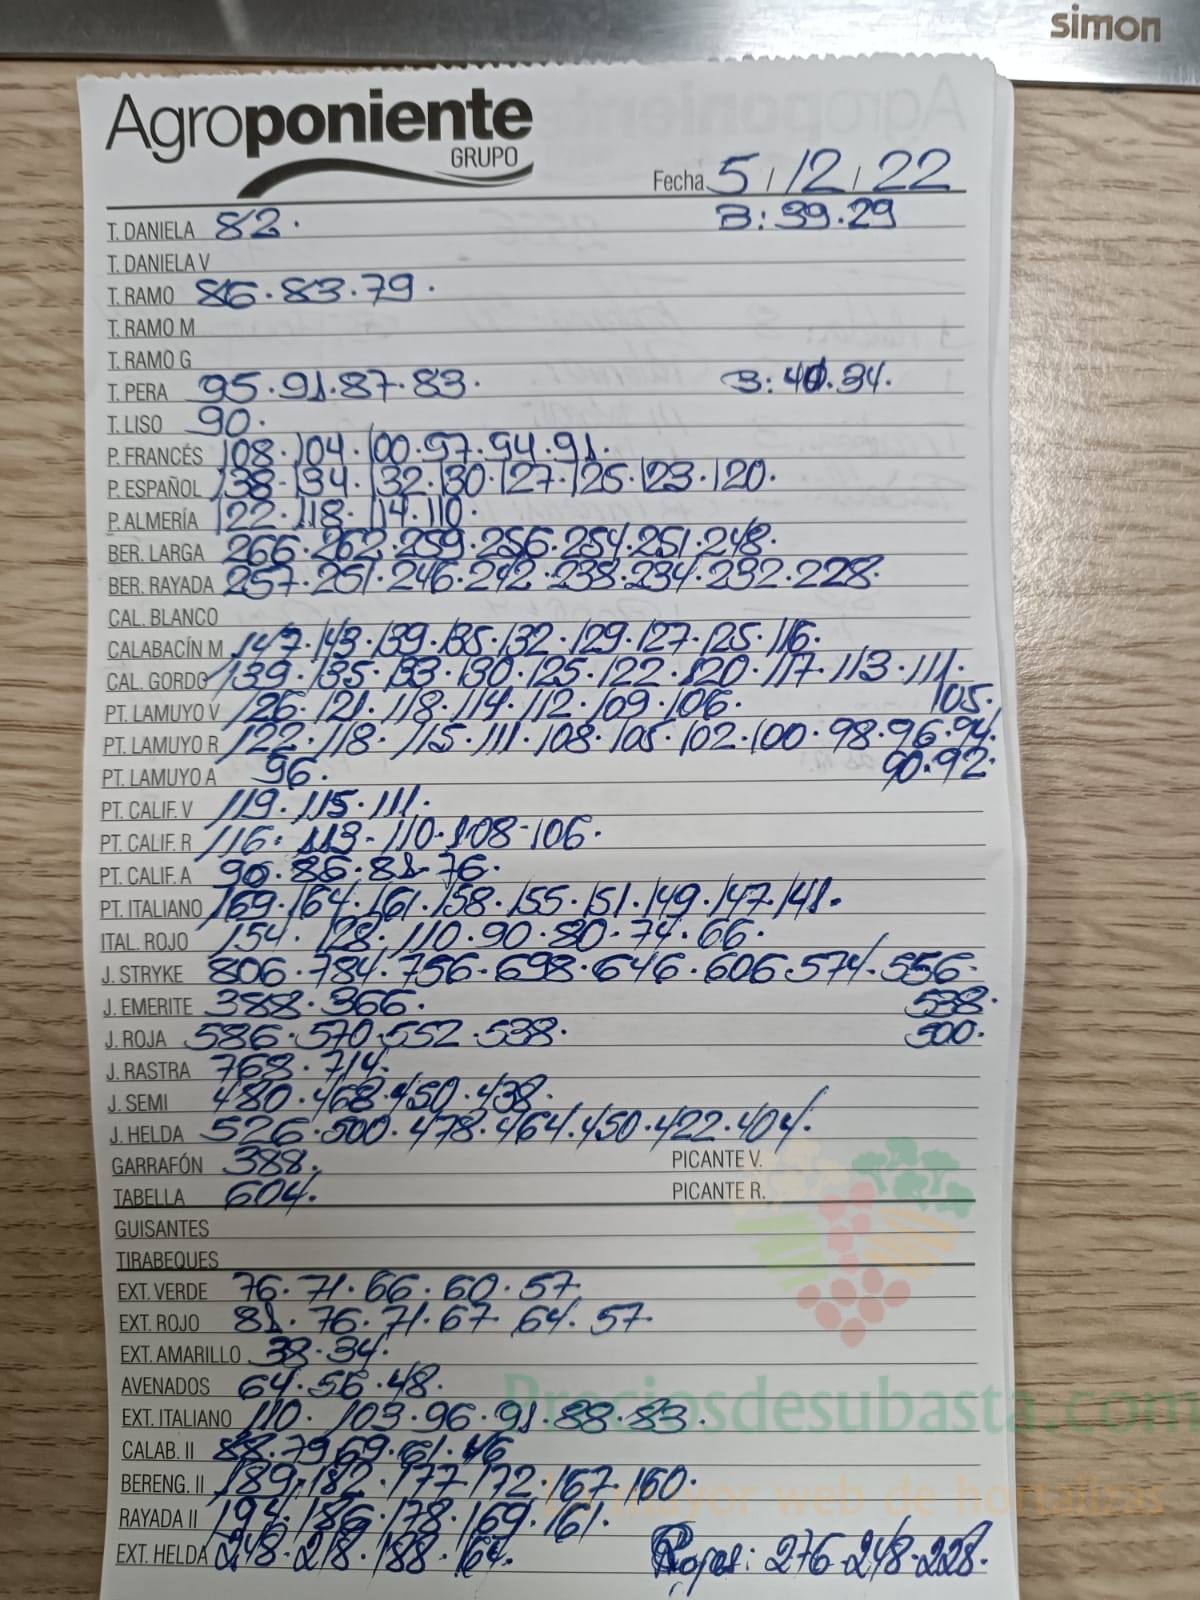 simon
Agroponiente
GRUPO
Fecha 5 / 12 / 22
T. DANIELA 82. B: 39.29
T. DANIELA V
T. RAMO 86.83.79.
T. RAMO M
T. RAMO G
T. PERA 95.91.87.83. B: 40.34.
T. LISO 90.
P. FRANCÉS 108.104.100.97.94.91.
P. ESPAÑOL 138.134.132.130.127.125.123.120.
P. ALMERÍA 122.118.114.110.
BER. LARGA 266.262.259.256.254.251.248.
BER. RAYADA 257.251.246.242.238.234.232.228.
CAL. BLANCO
CALABACÍN M 147.143.139.135.132.129.127.125.116.
CAL. GORDO 139.135.133.130.125.122.120.117.113.111.
105.
PT. LAMUYO V 126.121.118.114.112.109.106.
PT. LAMUYO R 122.118.115.111.108.105.102.100.98.96.94.
90.92.
PT. LAMUYO A 96.
PT. CALIF. V 119.115.111.
PT. CALIF. R 116.113-110.108-106.
PT. CALIF. A 90.86.81-76.
PT. ITALIANO 169.164.161.158.155.151.149.147.141.
ITAL. ROJO 154.128.110.90.80.74.66.
J. STRYKE 806.784.756.698.646.606.574.556.
538.
J. EMERITE 388.366.
500.
J. ROJA 586.570.552.538.
J. RASTRA 768.714.
J. SEMI 480.468.450.438.
J. HELDA 526.500.478.464.450.422.404.
GARRAFÓN 388. PICANTE V.
TABELLA 604. PICANTE R.
GUISANTES
TIRABEQUES
EXT. VERDE 76.71.66.60.57
EXT. ROJO 81.76.71.67.64.57.
EXT. AMARILLO 38.34.
AVENADOS 64.56.48.
Preciosdesubasta.com
EXT. ITALIANO 110.103.96.91.88.83.
CALAB. II 88.79.69.61.46
BERENG. II 189.182.177.172.167.160.
mayor web de hortalizas
RAYADA II 194.186.178.169.161.
EXT. HELDA 248.218.188.164. Rojas: 276.248.228.